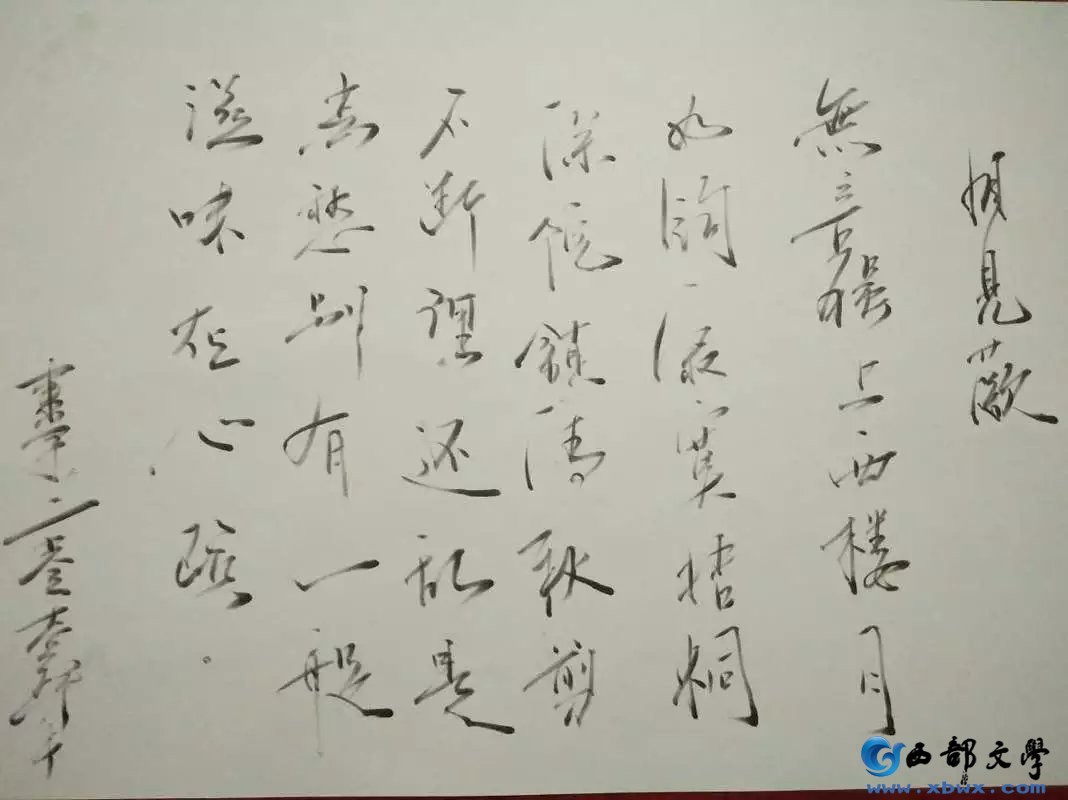 相見歡
無言獨上西樓月
如鈎寂寞梧桐
深院鎖清秋剪
不斷理还乱是
离愁别有一般
滋味在心頭
西部文學
www.xbwx.com